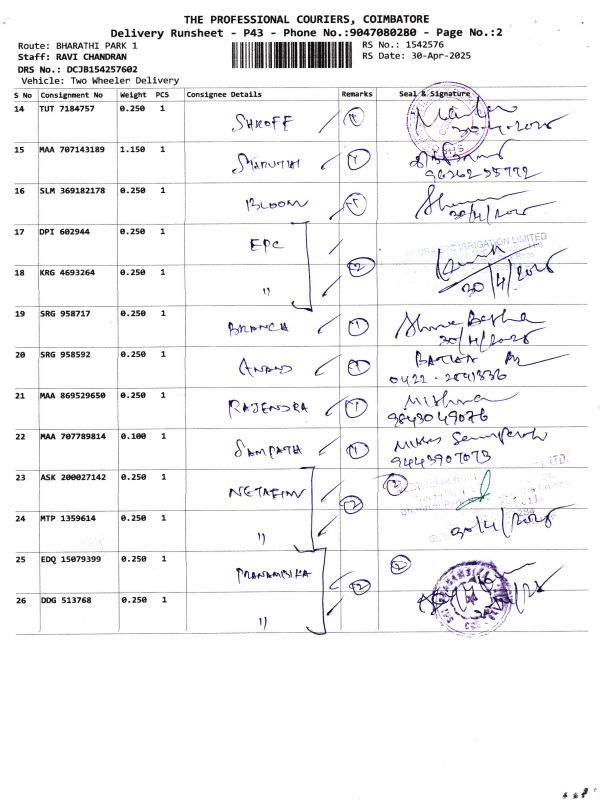 THE PROFESSIONAL COURIERS, COIMBATORE
Delivery Runsheet - P43 - Phone No.:9047080280 - Page No.:2
Route: BHARATHI PARK 1
RS No.: 1542576
Staff: RAVI CHANDRAN
RS Date: 30-Apr-2025
DRS No.: DCJB154257602
Vehicle: Two Wheeler Delivery
S No Consignment No Weight PCS Consignee Details Remarks Seal & Signature
14 TUT 7184757 0.250 1
SHROFF
15 MAA 707143189 1.150 1
MARUTHI 1
16 SLM 369182178 0.250 1
BLOOM
30/4/2025
17 DPI 602944 0.250 1
EPC
IRRIGATION LIMITED
18 KRG 4693264 0.250 1
" 2
30/4/2025
19 SRG 958717 0.250 1
BRANCH 1
30/4/2025
20 SRG 958592 0.250 1
ANAND 1
21 MAA 869529650 0.250 1
RAJENDRA 1 Mishra
9843049076
22 MAA 707789814 0.100 1
SAMPATH 1
9443907073
23 ASK 200027142 0.250 1
NETAFIM 2 2
24 MTP 1359614 0.250 1
"
30/4/2025
25 EDQ 15079399 0.250 1
PRANAMBIKA 2 2
26 DDG 513768 0.250 1
"